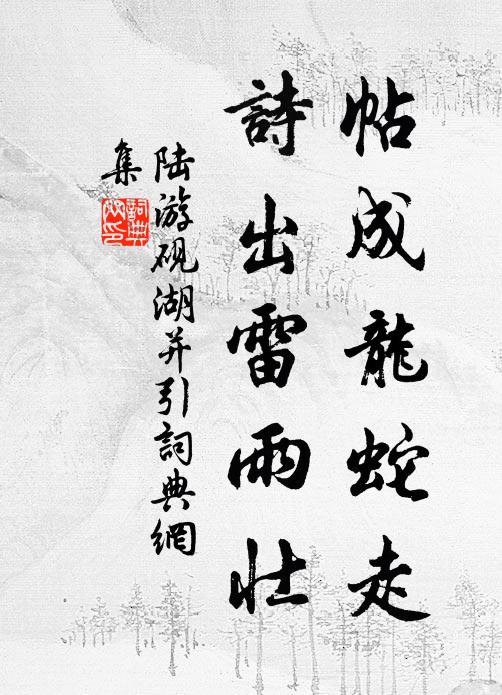 帖成龍蛇走
詩出雷雨壯
陆游砚湖并引詞典網
集
詞典網印